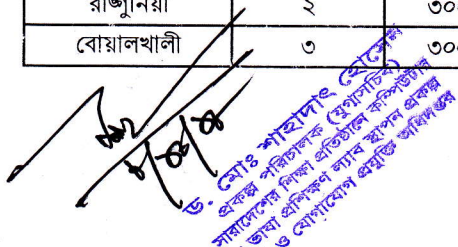 রাঙ্গুনিয়া ২
বোয়ালখালী ৩
ড. মোঃ শাহাদাৎ হোসেন
প্রকল্প পরিচালক (যুগ্মসচিব)
সারাদেশের শিক্ষা প্রতিষ্ঠানে কম্পিউটার
ভাষা প্রশিক্ষণ ল্যাব স্থাপন প্রকল্প
ও যোগাযোগ প্রযুক্তি অধিদপ্তর